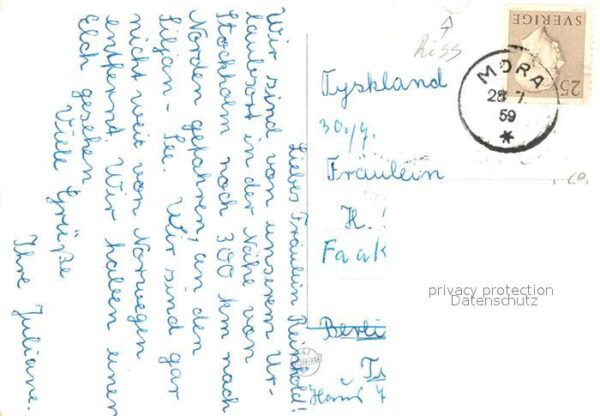 Liebes Fräulein Reinhold!
Wir sind von unserem Ur-
laubsort in der Nähe von
Stockholm noch 300 km nach
Norden gefahren, an den
Siljan-See. Wir sind gar
nicht weit von Norwegen
entfernt. Wir haben einen
Elch gesehen
Viele Grüße
Ihre Juliane.
Riss
SVERIGE
25
MORA
28 7
59
Tyskland
30./7.
Fräulein
H.
Faak
Berli
Haus
privacy protection
Datenschutz